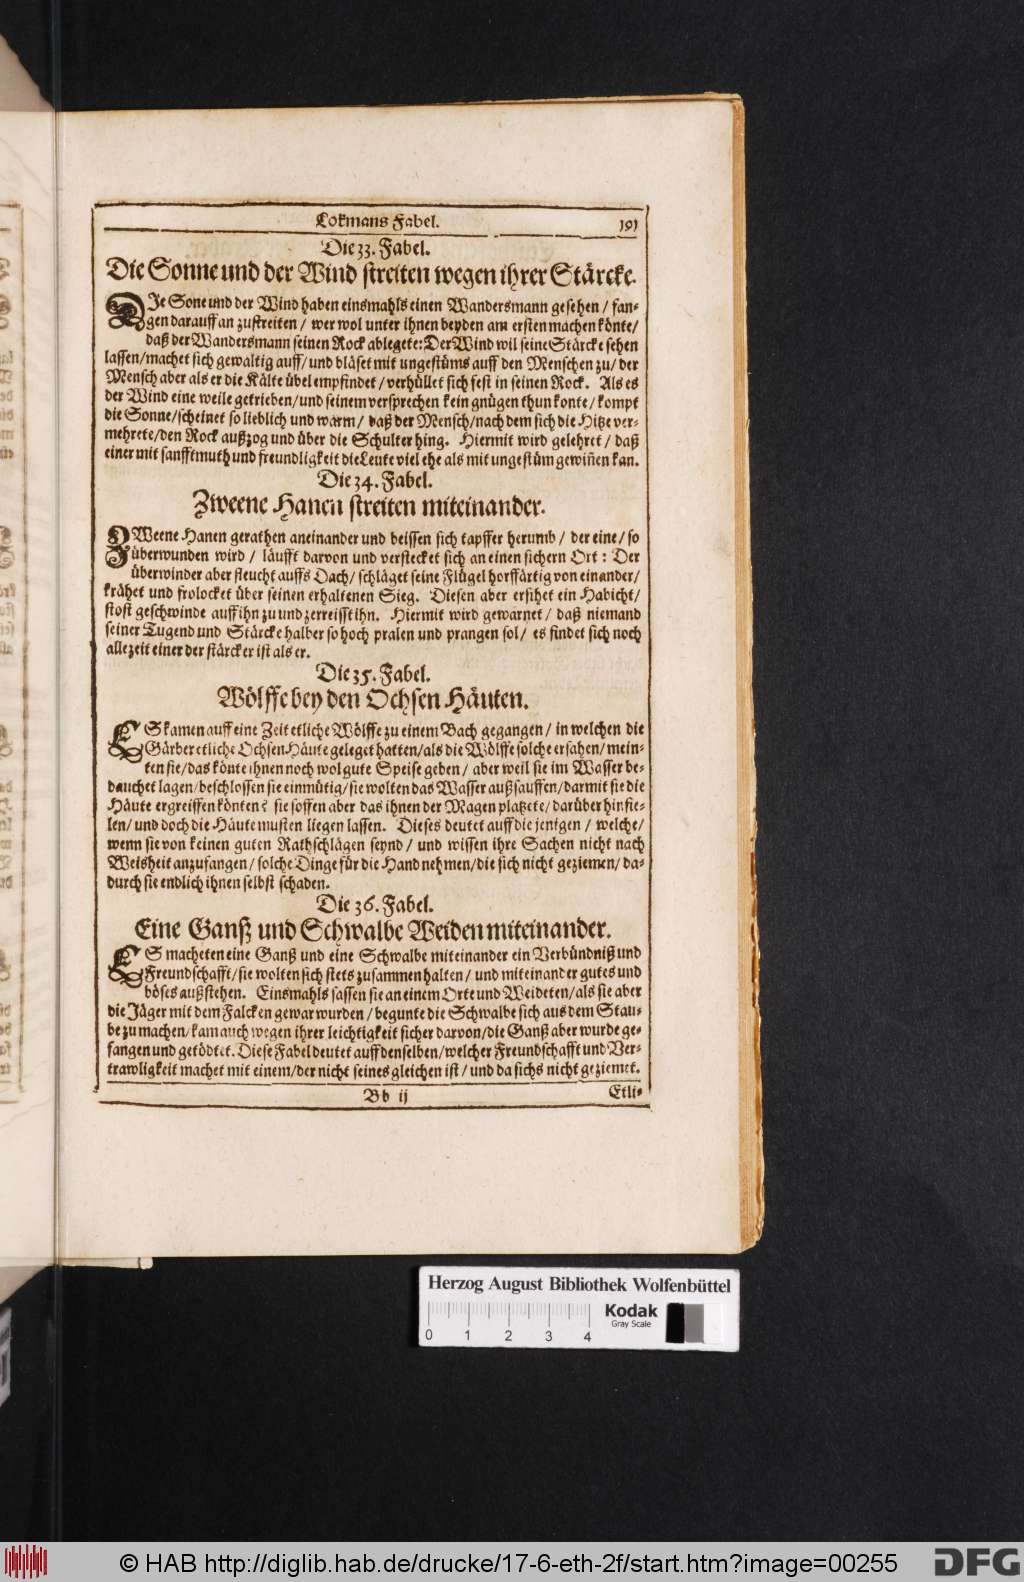 Lokmans Fabel. 191
Die 33. Fabel.
Die Sonne und der Wind streiten wegen ihrer Stärcke.
DJe Sone und der Wind haben einsmahls einen Wandersmann gesehen / fan-
gen darauff an zustreiten / wer wol unter ihnen beyden am ersten machen könte /
daß der Wandersmann seinen Rock ablegete: Der Wind wil seine Stärcke sehen
lassen / machet sich gewaltig auff / und bläset mit ungestüms auff den Menschen zu / der
Mensch aber als er die Kälte übel empfindet / verhüllet sich fest in seinen Rock. Als es
der Wind eine weile getrieben / und seinem versprechen kein gnügen thun konte / kompt
die Sonne / scheinet so lieblich und warm / daß der Mensch / nach dem sich die Hitze ver-
mehrete / den Rock außzog und über die Schulter hing. Hiermit wird gelehret / daß
einer mit sanfftmuth und freundligkeit die Leute viel ehe als mit ungestüm gewiñen kan.
Die 34. Fabel.
Zweene Hanen streiten miteinander.
ZWeene Hanen gerathen aneinander und beissen sich tapffer herumb / der eine / so
überwunden wird / läufft darvon und verstecket sich an einen sichern Ort : Der
überwinder aber fleucht auffs Dach / schläget seine Flügel horffärtig von einander /
krähet und frolocket über seinen erhaltenen Sieg. Diesen aber ersihet ein Habicht /
stost geschwinde auff ihn zu und zerreisst ihn. Hiermit wird gewarnet / daß niemand
seiner Tugend und Stärcke halber so hoch pralen und prangen sol / es findet sich noch
allezeit einer der stärcker ist als er.
Die 35. Fabel.
Wölffe bey den Ochsen Häuten.
ES kamen auff eine Zeit etliche Wölffe zu einem Bach gegangen / in welchen die
Gärber etliche Ochsen Häute geleget hatten / als die Wölffe solche ersahen / mein-
ten sie / das könte ihnen noch wol gute Speise geben / aber weil sie im Wasser be-
dauchet lagen / beschlossen sie einmütig / sie wolten das Wasser außsauffen / darmit sie die
Häute ergreiffen könten? sie soffen aber das ihnen der Magen platzete / darüber hin fie-
len / und doch die Häute musten liegen lassen. Dieses deutet auff die jenigen / welche /
wenn sie von keinen guten Rathschlägen seynd / und wissen ihre Sachen nicht nach
Weisheit anzufangen / solche Dinge für die Hand nehmen / die sich nicht geziemen / da-
durch sie endlich ihnen selbst schaden.
Die 36. Fabel.
Eine Ganß und Schwalbe Weiden miteinander.
ES macheten eine Ganß und eine Schwalbe miteinander ein Verbündniß und
Freundschafft / sie wolten sich stets zusammen halten / und miteinander gutes und
böses außstehen. Einsmahls sassen sie an einem Orte und Weideten / als sie aber
die Jäger mit dem Falcken gewar wurden / begunte die Schwalbe sich aus dem Stau-
be zu machen / kam auch wegen ihrer leichtigkeit sicher darvon / die Ganß aber wurde ge-
fangen und getödtet. Diese Fabel deutet auff denselben / welcher Freundschafft und Ver-
trawligkeit machet mit einem / der nicht seines gleichen ist / und da sichs nicht geziemet.
Bb ij Etli-
Herzog August Bibliothek Wolfenbüttel
Kodak
Gray Scale
0 1 2 3 4
© HAB http://diglib.hab.de/drucke/17-6-eth-2f/start.htm?image=00255
DFG